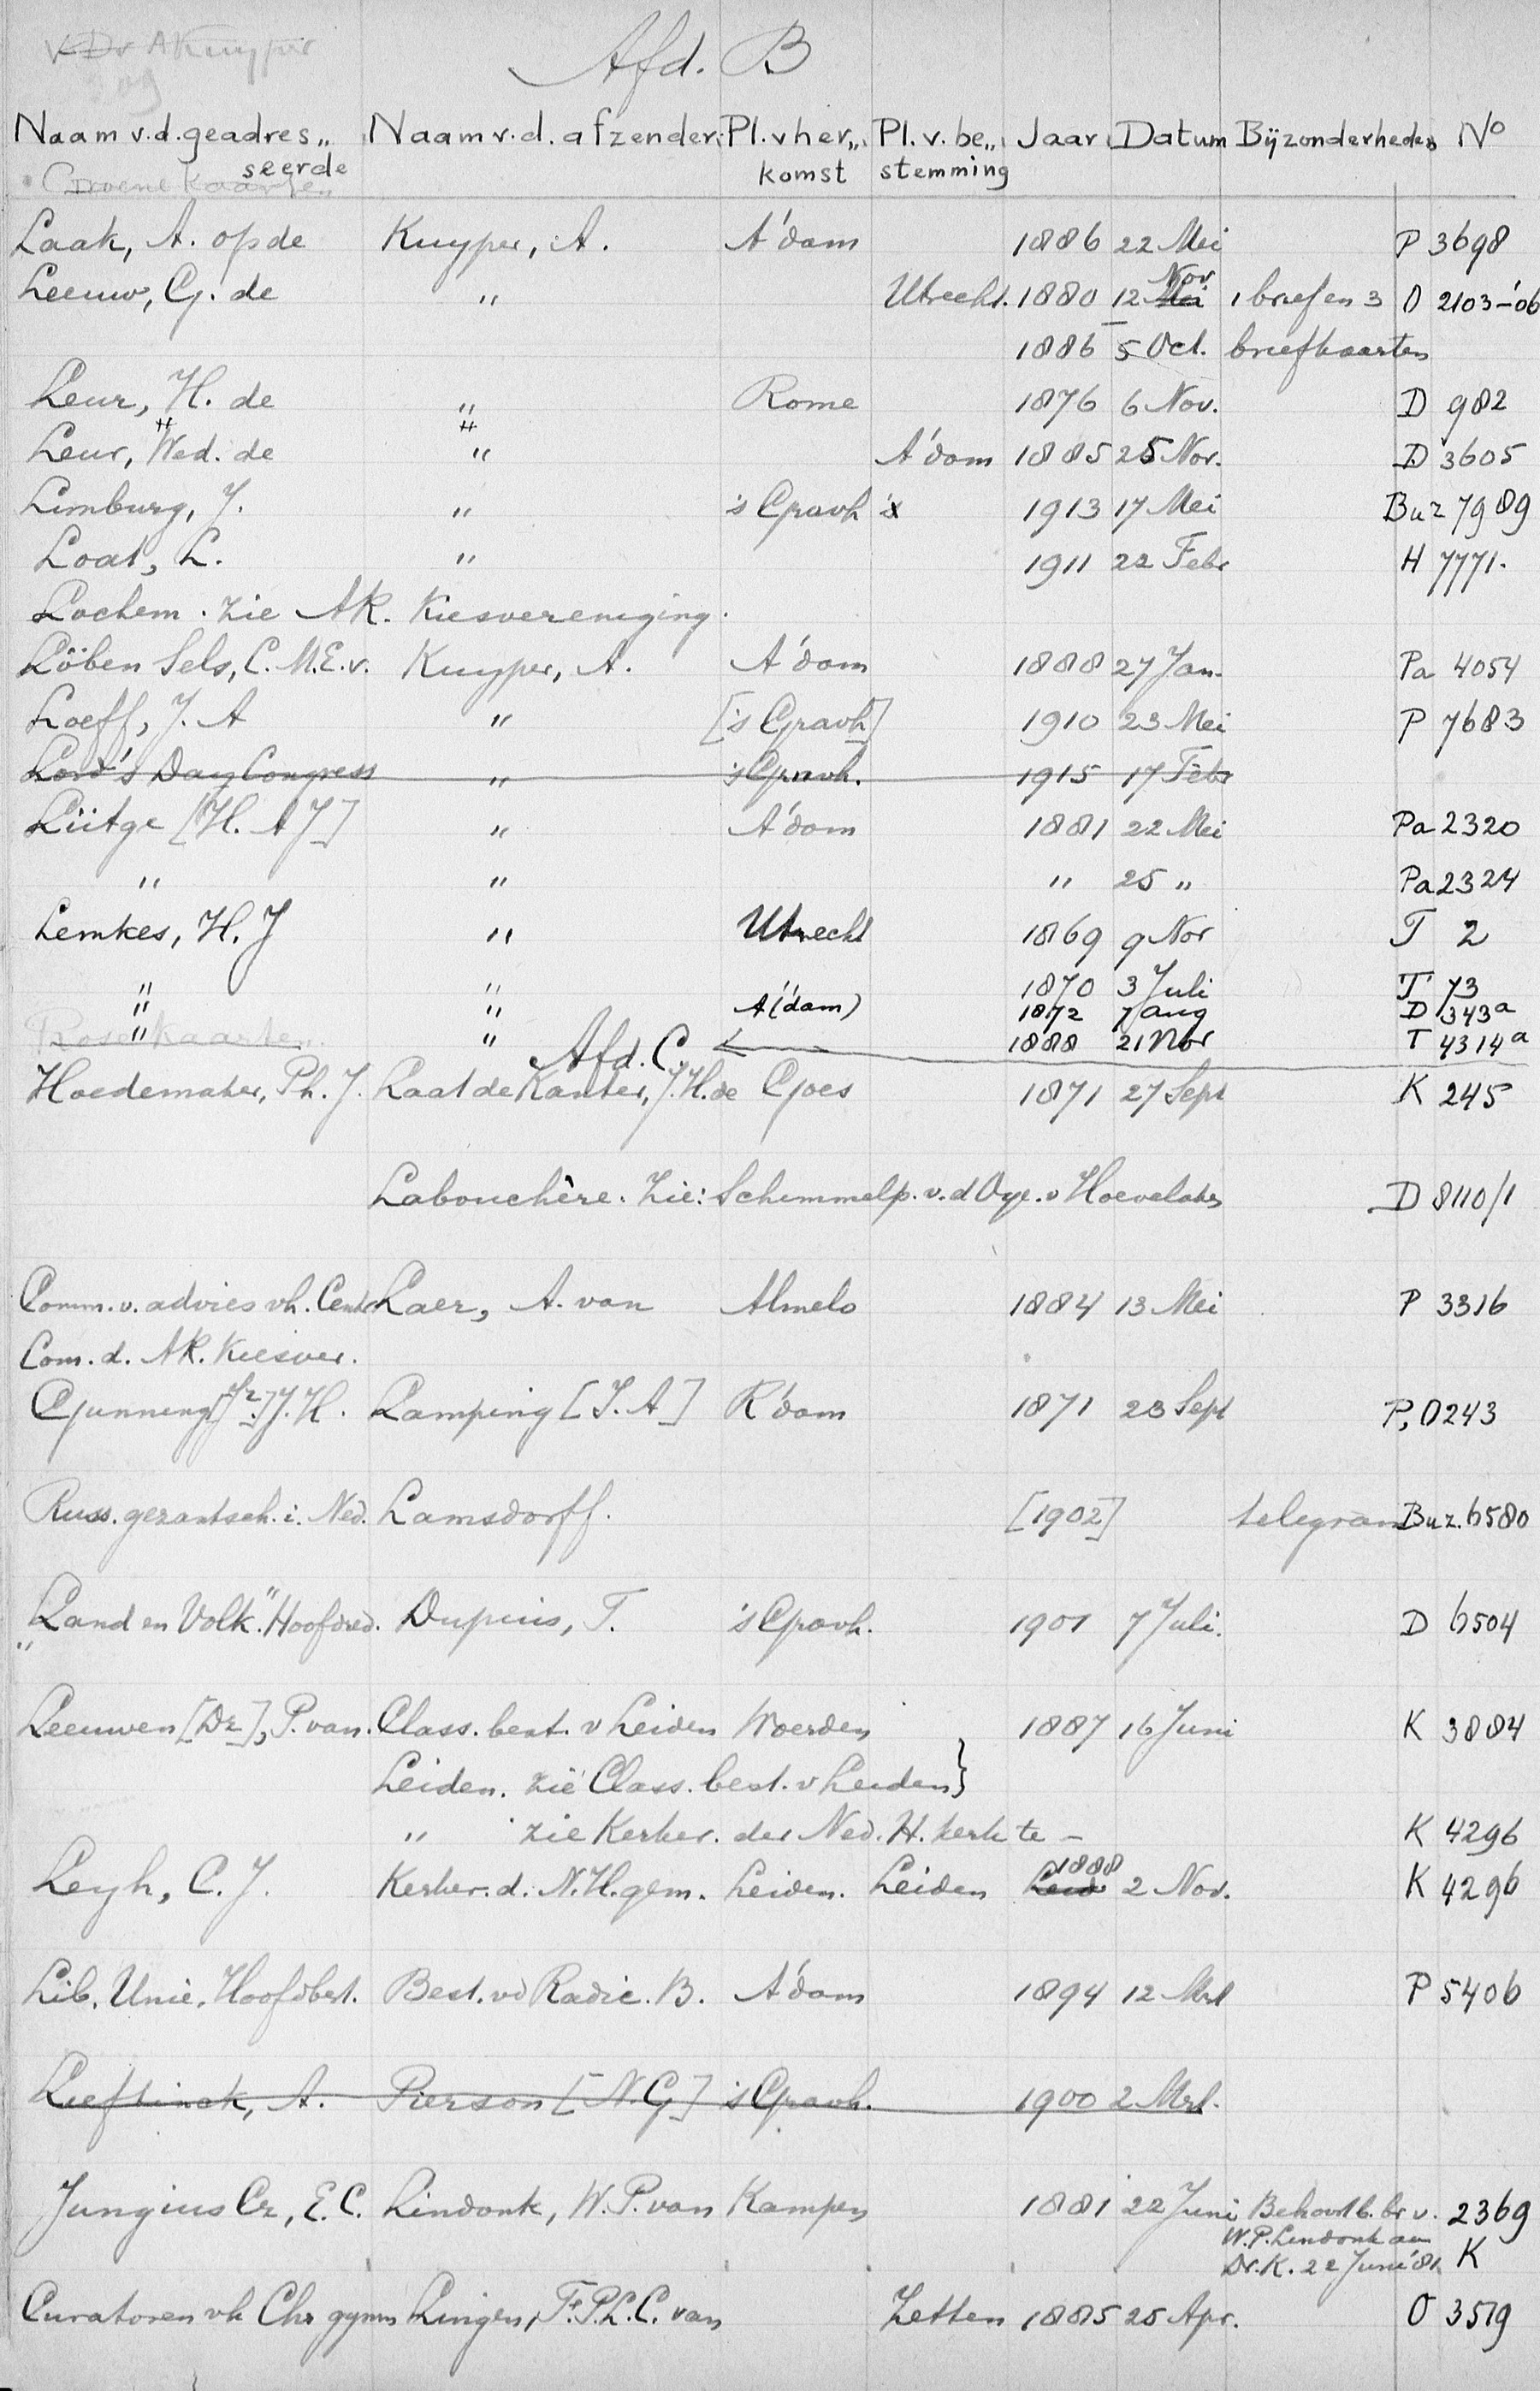 v. Dr A Kuyper
Afd. B
Naam v.d. geadres„ Naam v.d. afzender. Pl. v her„ Pl. v. be„ Jaar Datum Bijzonderheden No
seerde komst stemming
Groene kaartje„
Laak, A. op de Kuyper, A. A'dam 1886 22 Mei P 3698
Nov
Leeuw, G. de " Utrecht. 1880 12 Mei 1 brief en 3 O 2103-'06
1886 5 Oct. briefkaarten
Leur, H. de " Rome 1876 6 Nov. D 982
Leur, Wed. de " A'dam 1885 25 Nor. D 3605
Limburg, J. " 's Gravh x 1913 17 Mei Buz 7989
Loat, L. " 1911 22 Febr H 7771.
Lochem. zie AR. Kiesvereniging.
Löben Sels, C. M.E. v. Kuyper, A. A'dam 1888 27 Jan. Pa 4054
Loeff, J. A " ['s Gravh] 1910 23 Mei P 7683
Lord's Day Congress " 's Gravh. 1915 17 Febr
Lütge [H. A J] " A'dam 1881 22 Mei Pa 2320
" " " 25 " Pa 2324
Lemkes, H. J " Utrecht 1869 9 Nov T 2
" " 1870 3 Juli T 73
" " A(dam) 1872 7 aug D 343a
Rose kaarten " " 1888 21 Nov T 4314a
Afd. C.
Hoedemaker, Ph. J. Laat de Kanter, J. H. de Goes 1871 27 Sept K 245
Labouchère. Zie: Schimmelp. v. d Oye. v Hoevelaken D 8110/1
Comm. v. advies vh. Centr Laer, A. van Almelo 1884 13 Mei P 3316
Com. d. AR. Kiesver.
Gunning [Jr.] J. H. Lamping [J. A] R'dam 1871 23 Sept P, O 243
Russ. gezantsch. i. Ned. Lamsdorff. [1902] telegram Buz. 6580
„Land en Volk" Hoofdred. Dupuis, T. 's Gravh. 1901 7 Juli. D 6504
Leeuwen [Dr], P. van. Class. best. v Leiden Woerden 1887 16 Juni K 3884
Leiden. zie Class. best. v Leiden}
" zie Kerker. der Ned. H. kerk te - K 4296
1888
Leyh, C. J. Kerker. d. N. H. gem. Leiden. Leiden Leid 2 Nov. K 4296
Lib. Unie. Hoofdbest. Best. vd Radic. B. A'dam 1894 12 Mrt P 5406
Lieftinck, A. Pierson [N. G] 's Gravh. 1900 2 Mrt.
Jungius Cr, E. C. Lindonk, W. P. van Kampen 1881 22 Juni Behoort b. br v. 2369
W. P. Lindonk aan
Dr. K. 22 Juni '81 K
Curatoren vh Chr gymn Lingen, F. P. L. C. van Zetten 1885 25 Apr. O 3519